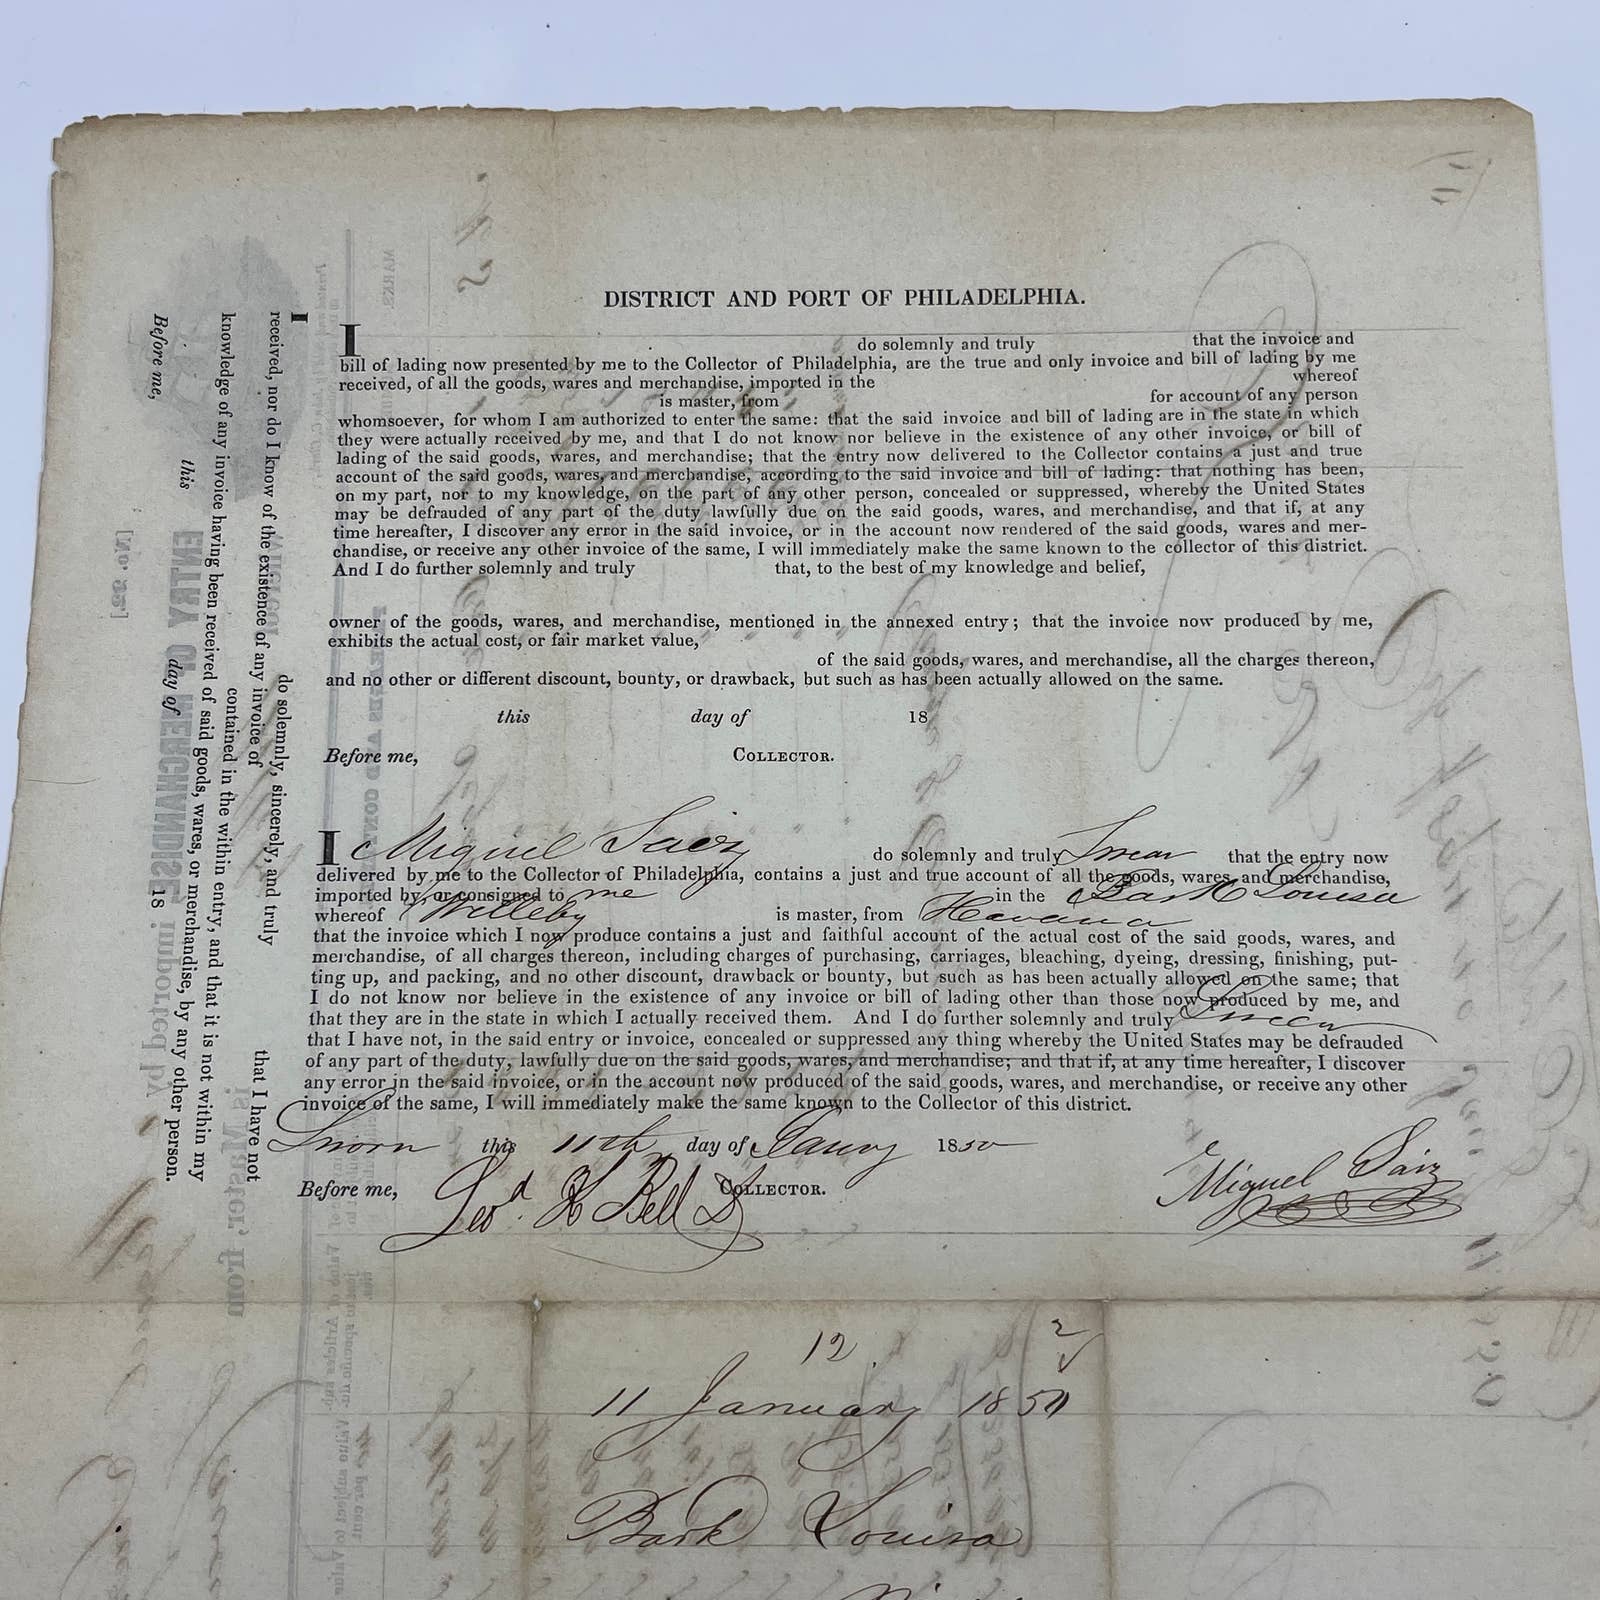 DISTRICT AND PORT OF PHILADELPHIA.
I do solemnly and truly that the invoice and
bill of lading now presented by me to the Collector of Philadelphia, are the true and only invoice and bill of lading by me
received, of all the goods, wares and merchandise, imported in the whereof
is master, from for account of any person
whomsoever, for whom I am authorized to enter the same: that the said invoice and bill of lading are in the state in which
they were actually received by me, and that I do not know nor believe in the existence of any other invoice, or bill of
lading of the said goods, wares, and merchandise; that the entry now delivered to the Collector contains a just and true
account of the said goods, wares, and merchandise, according to the said invoice and bill of lading: that nothing has been,
on my part, nor to my knowledge, on the part of any other person, concealed or suppressed, whereby the United States
may be defrauded of any part of the duty lawfully due on the said goods, wares, and merchandise, and that if, at any
time hereafter, I discover any error in the said invoice, or in the account now rendered of the said goods, wares and mer-
chandise, or receive any other invoice of the same, I will immediately make the same known to the collector of this district.
And I do further solemnly and truly that, to the best of my knowledge and belief,
owner of the goods, wares, and merchandise, mentioned in the annexed entry; that the invoice now produced by me,
exhibits the actual cost, or fair market value,
of the said goods, wares, and merchandise, all the charges thereon,
and no other or different discount, bounty, or drawback, but such as has been actually allowed on the same.
this day of 18
Before me, COLLECTOR.
I Miguel Saiz do solemnly and truly Swear that the entry now
delivered by me to the Collector of Philadelphia, contains a just and true account of all the goods, wares, and merchandise,
imported by, or consigned to me in the Bark Louisa
whereof Willeby is master, from Havana
that the invoice which I now produce contains a just and faithful account of the actual cost of the said goods, wares, and
merchandise, of all charges thereon, including charges of purchasing, carriages, bleaching, dyeing, dressing, finishing, put-
ting up, and packing, and no other discount, drawback or bounty, but such as has been actually allowed on the same; that
I do not know nor believe in the existence of any invoice or bill of lading other than those now produced by me, and
that they are in the state in which I actually received them. And I do further solemnly and truly Swear
that I have not, in the said entry or invoice, concealed or suppressed any thing whereby the United States may be defrauded
of any part of the duty, lawfully due on the said goods, wares, and merchandise; and that if, at any time hereafter, I discover
any error in the said invoice, or in the account now produced of the said goods, wares, and merchandise, or receive any other
invoice of the same, I will immediately make the same known to the Collector of this district.
Sworn this 11th day of Jany 1850
Before me, Geo. H Bell D COLLECTOR.
Miguel Saiz
12
11 January 1850
Bark Louisa
I do solemnly, sincerely, and truly that I have not
received, nor do I know of the existence of any invoice of
contained in the within entry, and that it is not within my
knowledge of any invoice having been received of said goods, wares, or merchandise, by any other person.
Before me, this day of 18
[No. 35]
ENTRY OF MERCHANDISE imported by
is Master, from
MARKS